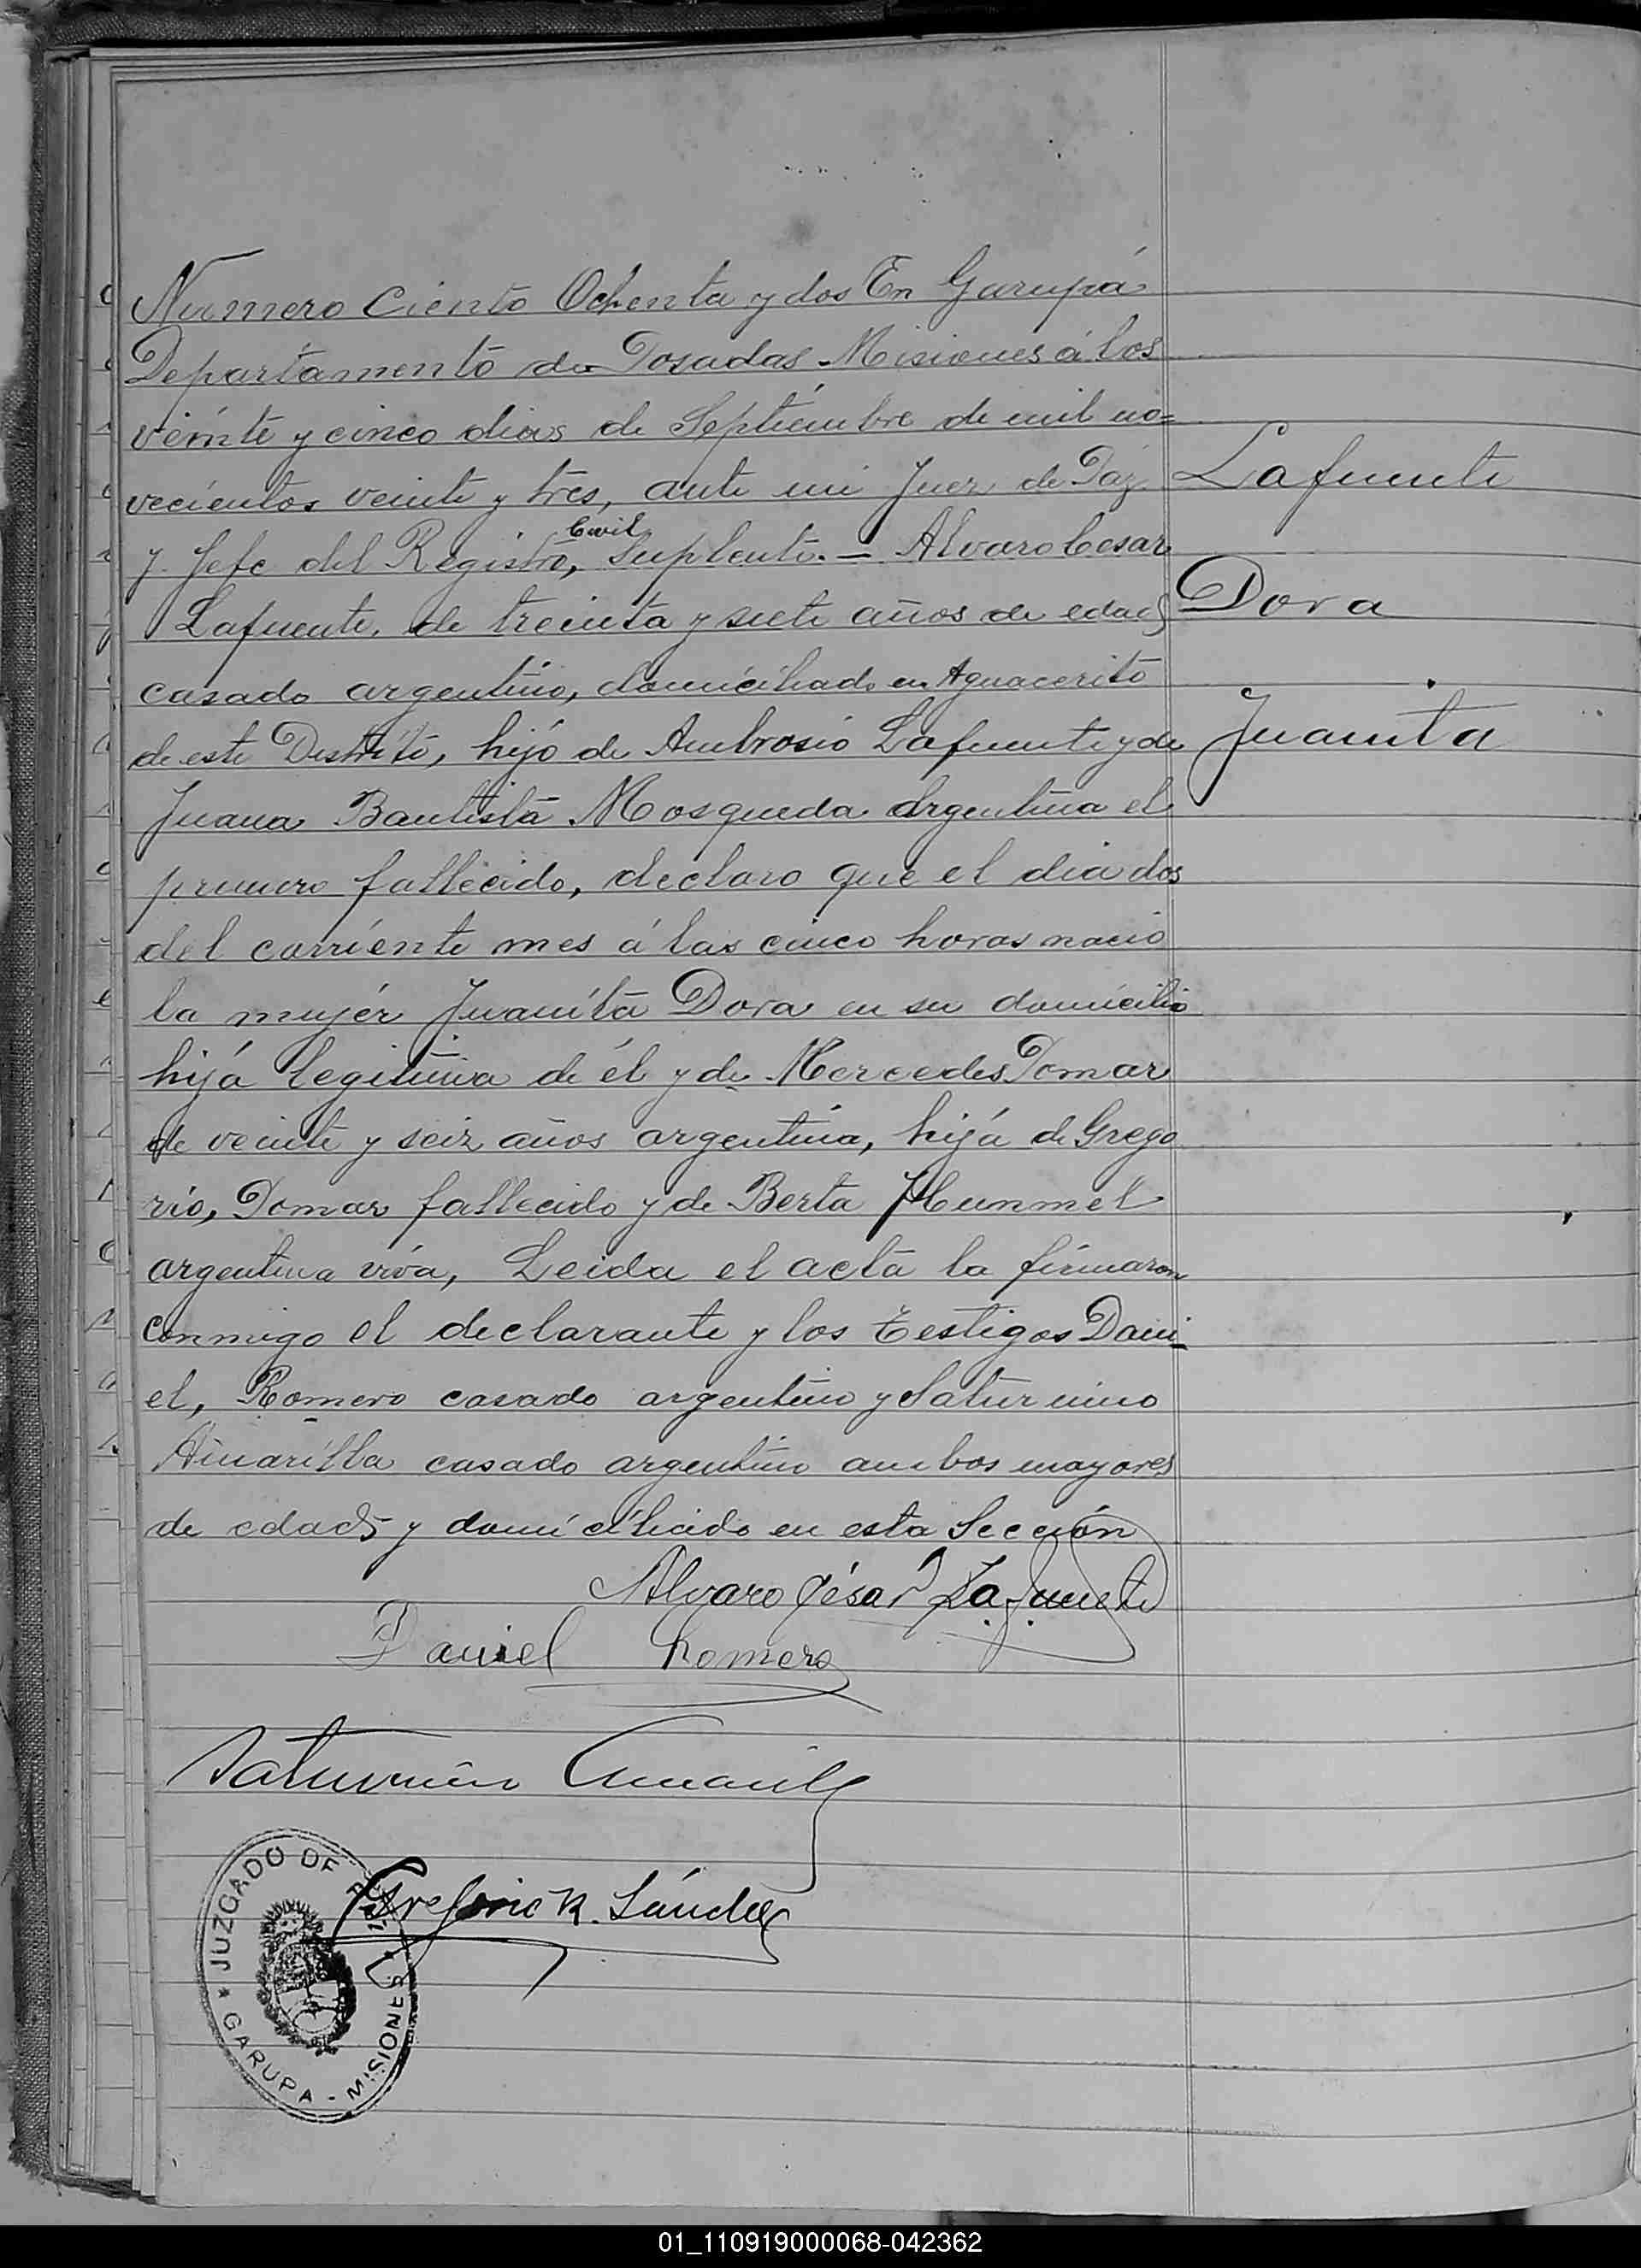 Numero Ciento Ochenta y dos En Garupá
Departamento de Posadas Misiones á los
veinte y cinco dias de Septiembre de mil no=
vecientos veinte y tres, ante mi Juez de Paz
y Jefe del Registro, Civil Suplente. — Alvaro Cesar
Lafuente, de treinta y siete años de edad
casado argentino, domiciliado en Aguacerito
de este Distrito, hijo de Ambrosio Lafuente y de
Juana Bautista Mosqueda argentina el
primero fallecido, declaro que el dia dos
del corriente mes á las cinco horas nació
la mujer Juanita Dora en su domicilio
hija legitima de él y de Mercedes Tomar
de veinte y seiz años argentina, hija de Grego
rio, Tomar fallecido y de Berta Hummel
argentina viva, Leida el acta la firmaron
conmigo el declarante y los testigos Dani
el, Romero casado argentino y Saturnino
Amarilla casado argentino ambos mayores
de edad y domiciliado en esta Sección
Alvaro César Lafuente
Daniel Romero
Saturnino Amarilla
Gregorio R. Sández
Lafuente
Dora
Juanita
JUZGADO DE PAZ
GARUPA - MISIONES
01_110919000068-042362